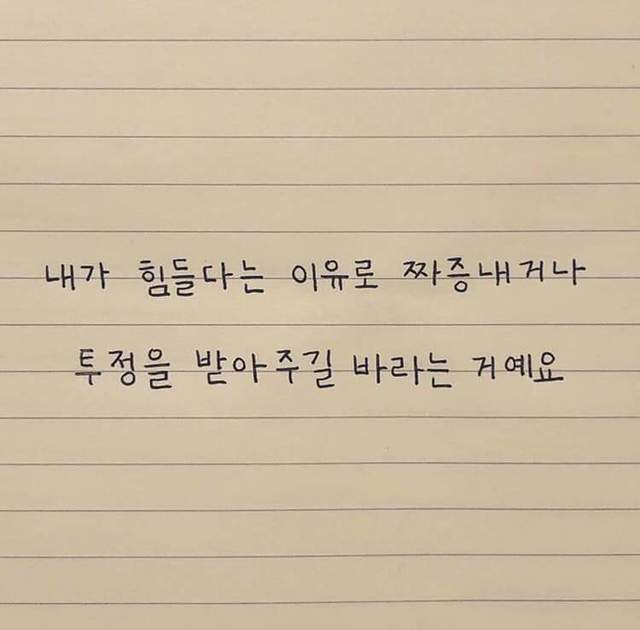 내가 힘들다는 이유로 짜증내거나
투정을 받아주길 바라는 거예요